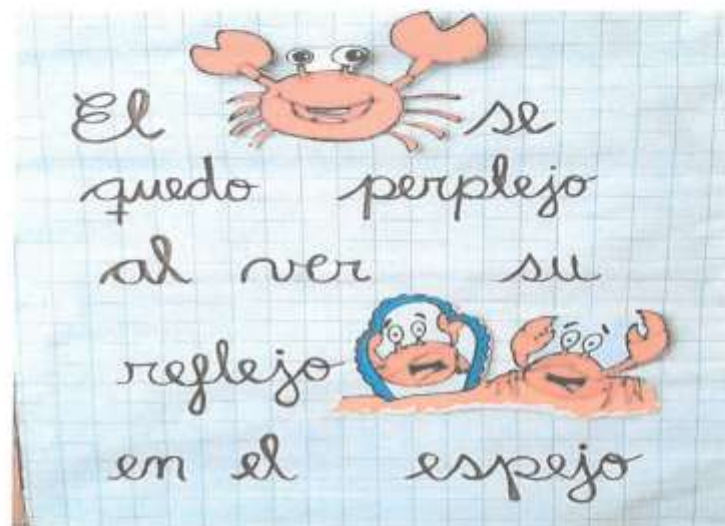 El se
quedo perplejo
al ver su
reflejo
en el espejo